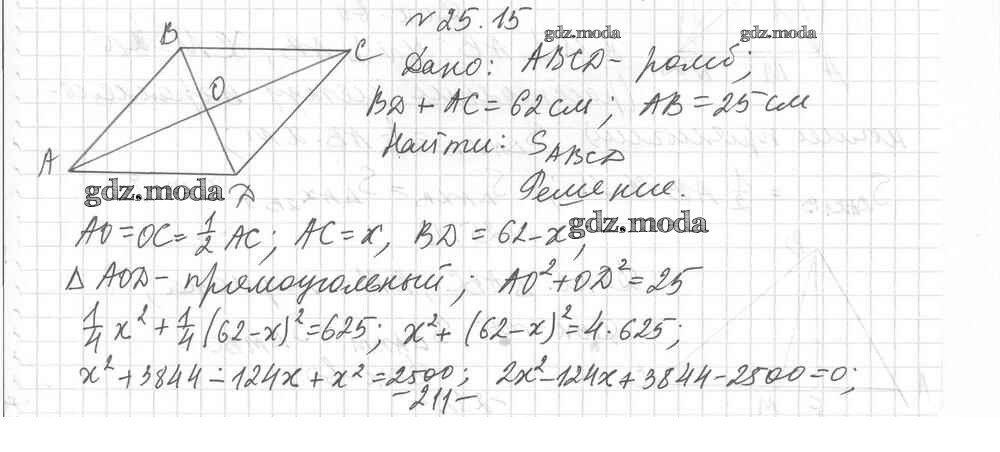 № 25.15
gdz.moda gdz.moda
B C
O
A
D
Дано: ABCD - ромб;
BD + AC = 62 см; AB = 25 см
Найти: S_ABCD
Решение.
gdz.moda gdz.moda
AO = OC = 1/2 AC; AC = x, BD = 62 - x;
Δ AOD - прямоугольный; AO² + OD² = 25
1/4 x² + 1/4 (62 - x)² = 625; x² + (62 - x)² = 4 · 625;
x² + 3844 - 124x + x² = 2500; 2x² - 124x + 3844 - 2500 = 0;
- 211 -